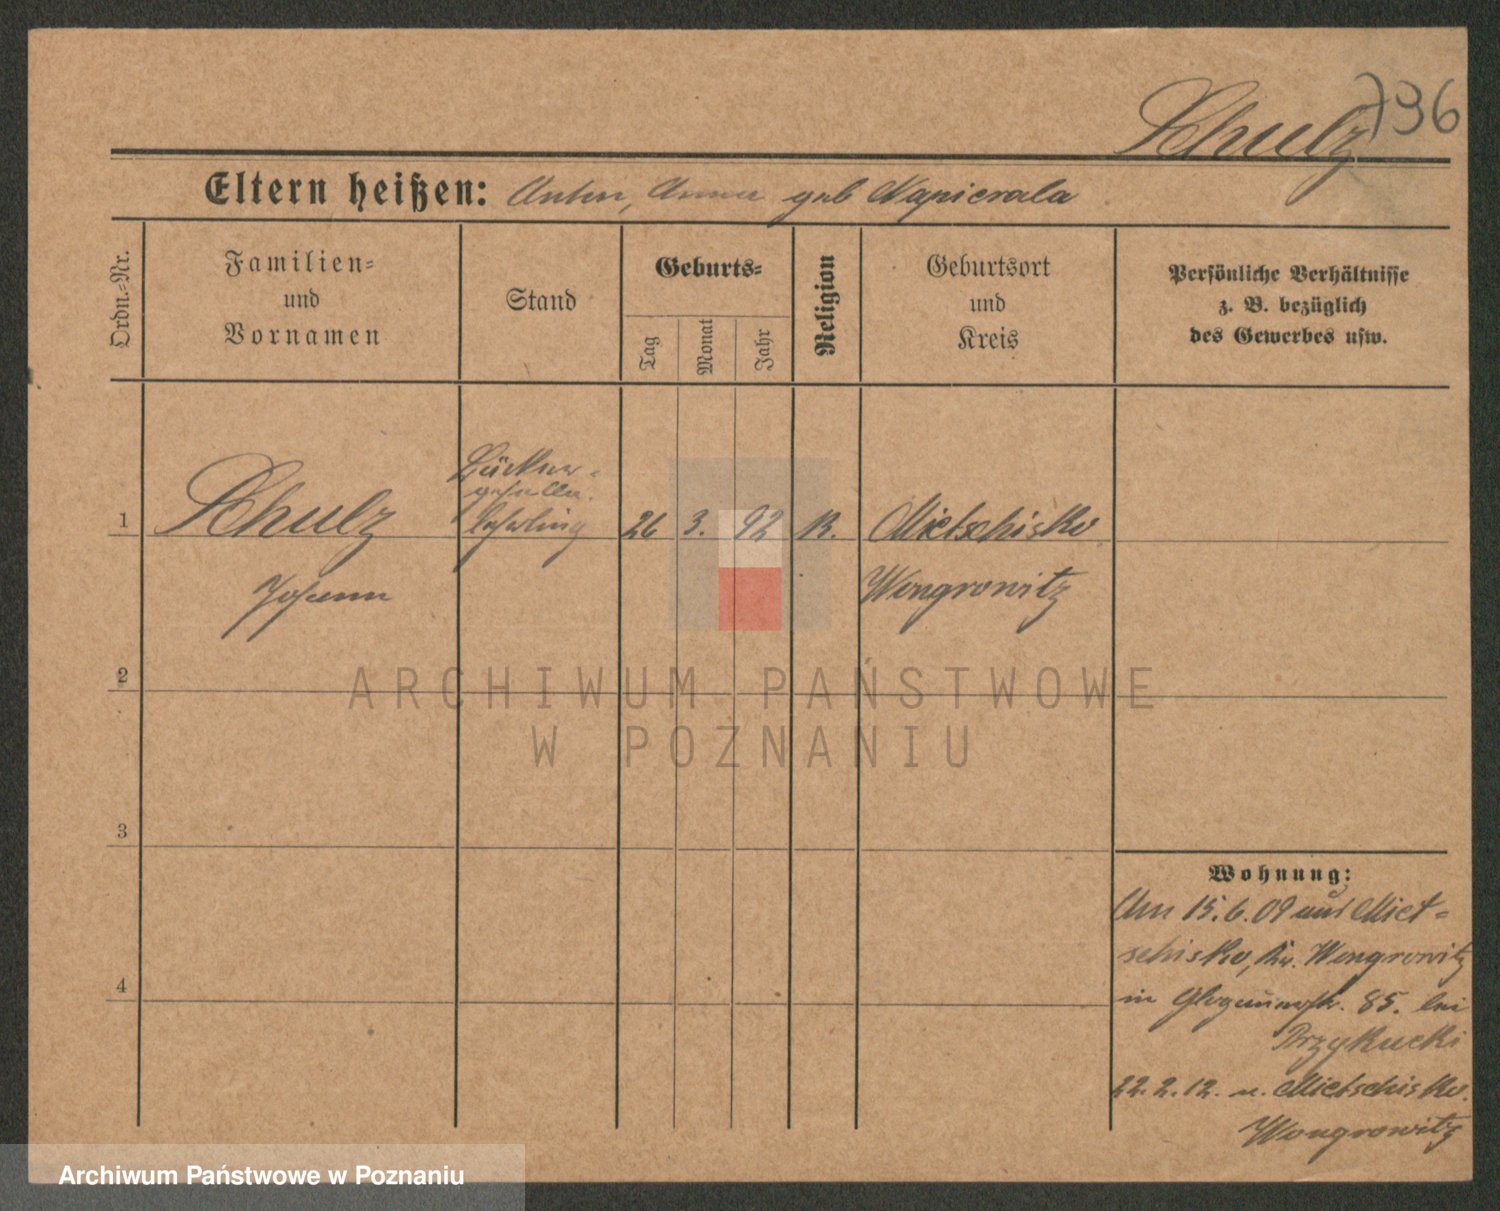 Schulz 796
Eltern heißen: Anton, Anna geb Napierala
Ordn.-Nr.
Familien-
und
Vornamen
Stand
Geburts-
Tag
Monat
Jahr
Religion
Geburtsort
und
Kreis
Persönliche Verhältnisse
z. B. bezüglich
des Gewerbes usw.
Bäcker-
geselle.
1 Schulz lehrling 26 3. 92 K. Mietschisko
Johann Wongrowitz
2
ARCHIWUM PAŃSTWOWE
W POZNANIU
3
Wohnung:
Am 15.6.09 aus Miet-
schisko, Kr. Wongrowitz
4
in Glogauerstr. 85. bei
22.2.12. n. Mietschisko.
Wongrowitz
Archiwum Państwowe w Poznaniu